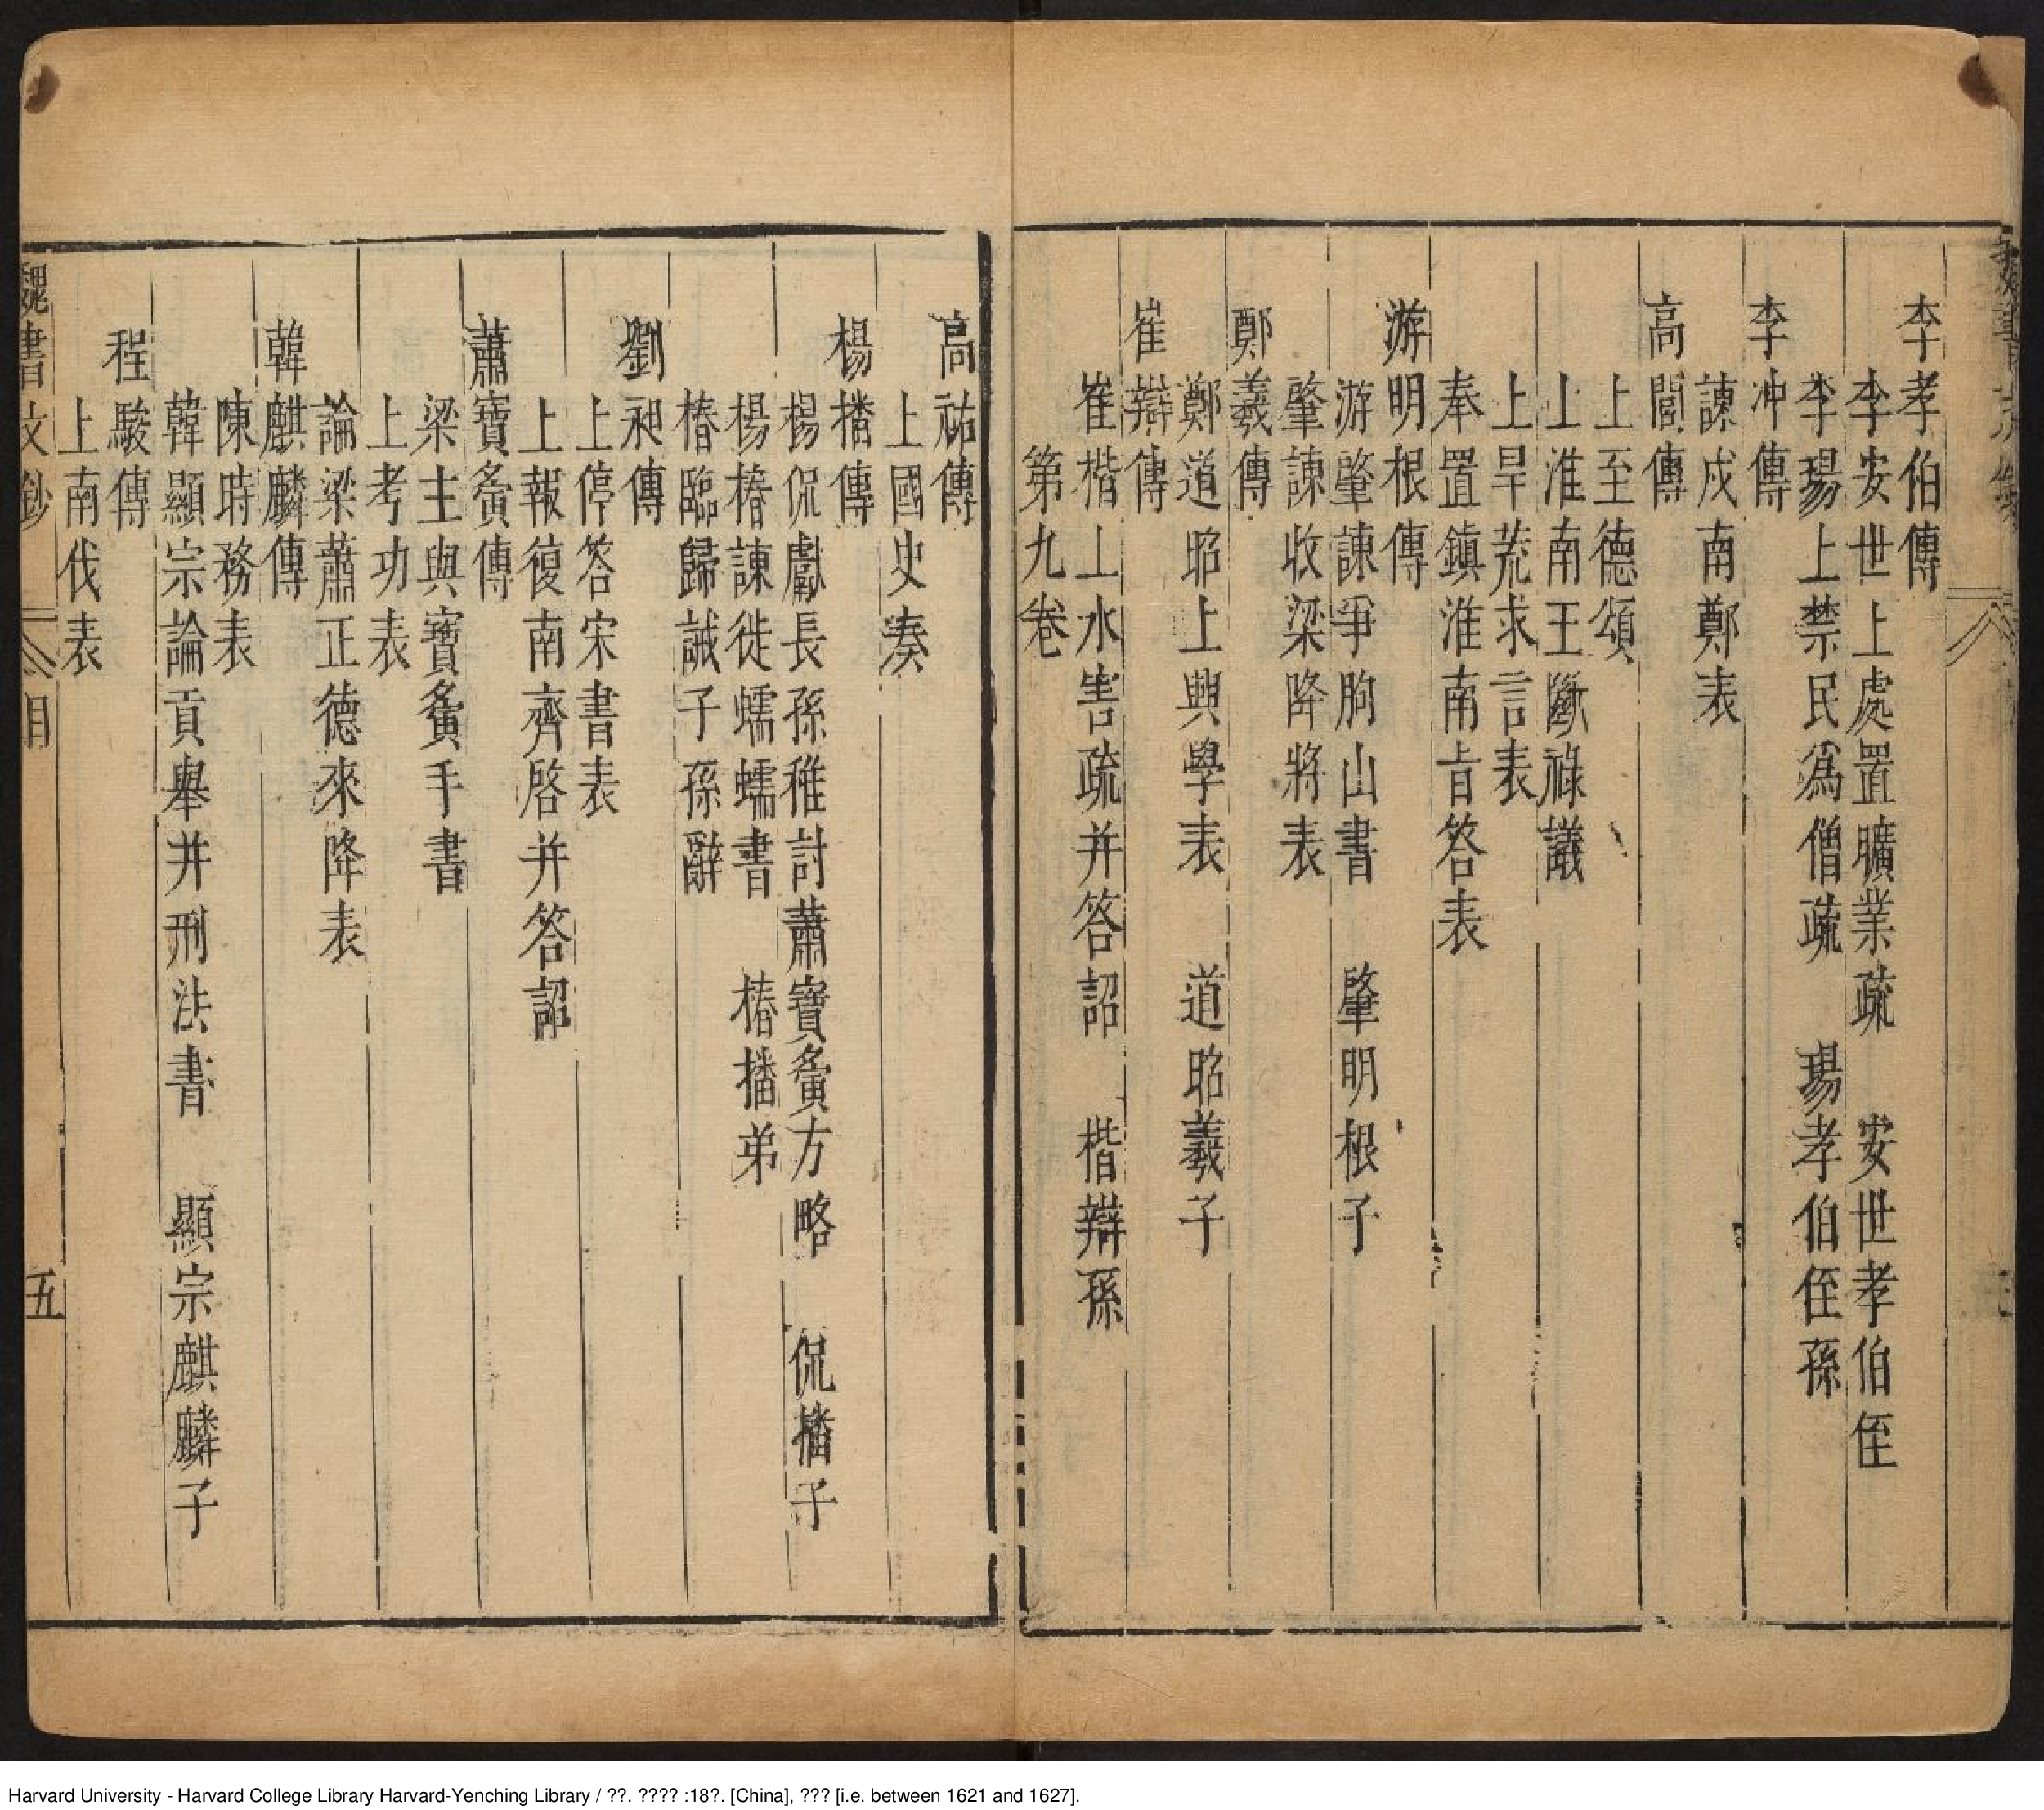 李孝伯傳
李安世上處置曠業疏　安世孝伯侄
李瑒上禁民爲僧疏　瑒孝伯侄孫
李冲傳
諫戍南鄭表
高閭傳
上至德頌
上淮南王斷祿議
上旱荒求言表
奉置鎮淮南旨答表
游明根傳
游肇諫爭朐山書　肇明根子
肇諫收梁降將表
鄭羲傳
鄭道昭上興學表　道昭羲子
崔辯傳
崔楷上水害疏并答詔　楷辯孫
第九卷
高祐傳
上國史奏
楊播傳
楊侃獻長孫稚討蕭寶夤方略　侃播子
楊椿諫徙蠕蠕書　椿播弟
椿臨歸誡子孫辭
劉昶傳
上停答宋書表
上報復南齊啓并答詔
蕭寶夤傳
梁主與寶夤手書
上考功表
論梁蕭正德來降表
韓麒麟傳
陳時務表
韓顯宗論貢舉并刑法書　顯宗麒麟子
程駿傳
上南伐表
魏書文鈔　目　五
Harvard University - Harvard College Library Harvard-Yenching Library / ??. ???? :18?. [China], ??? [i.e. between 1621 and 1627].